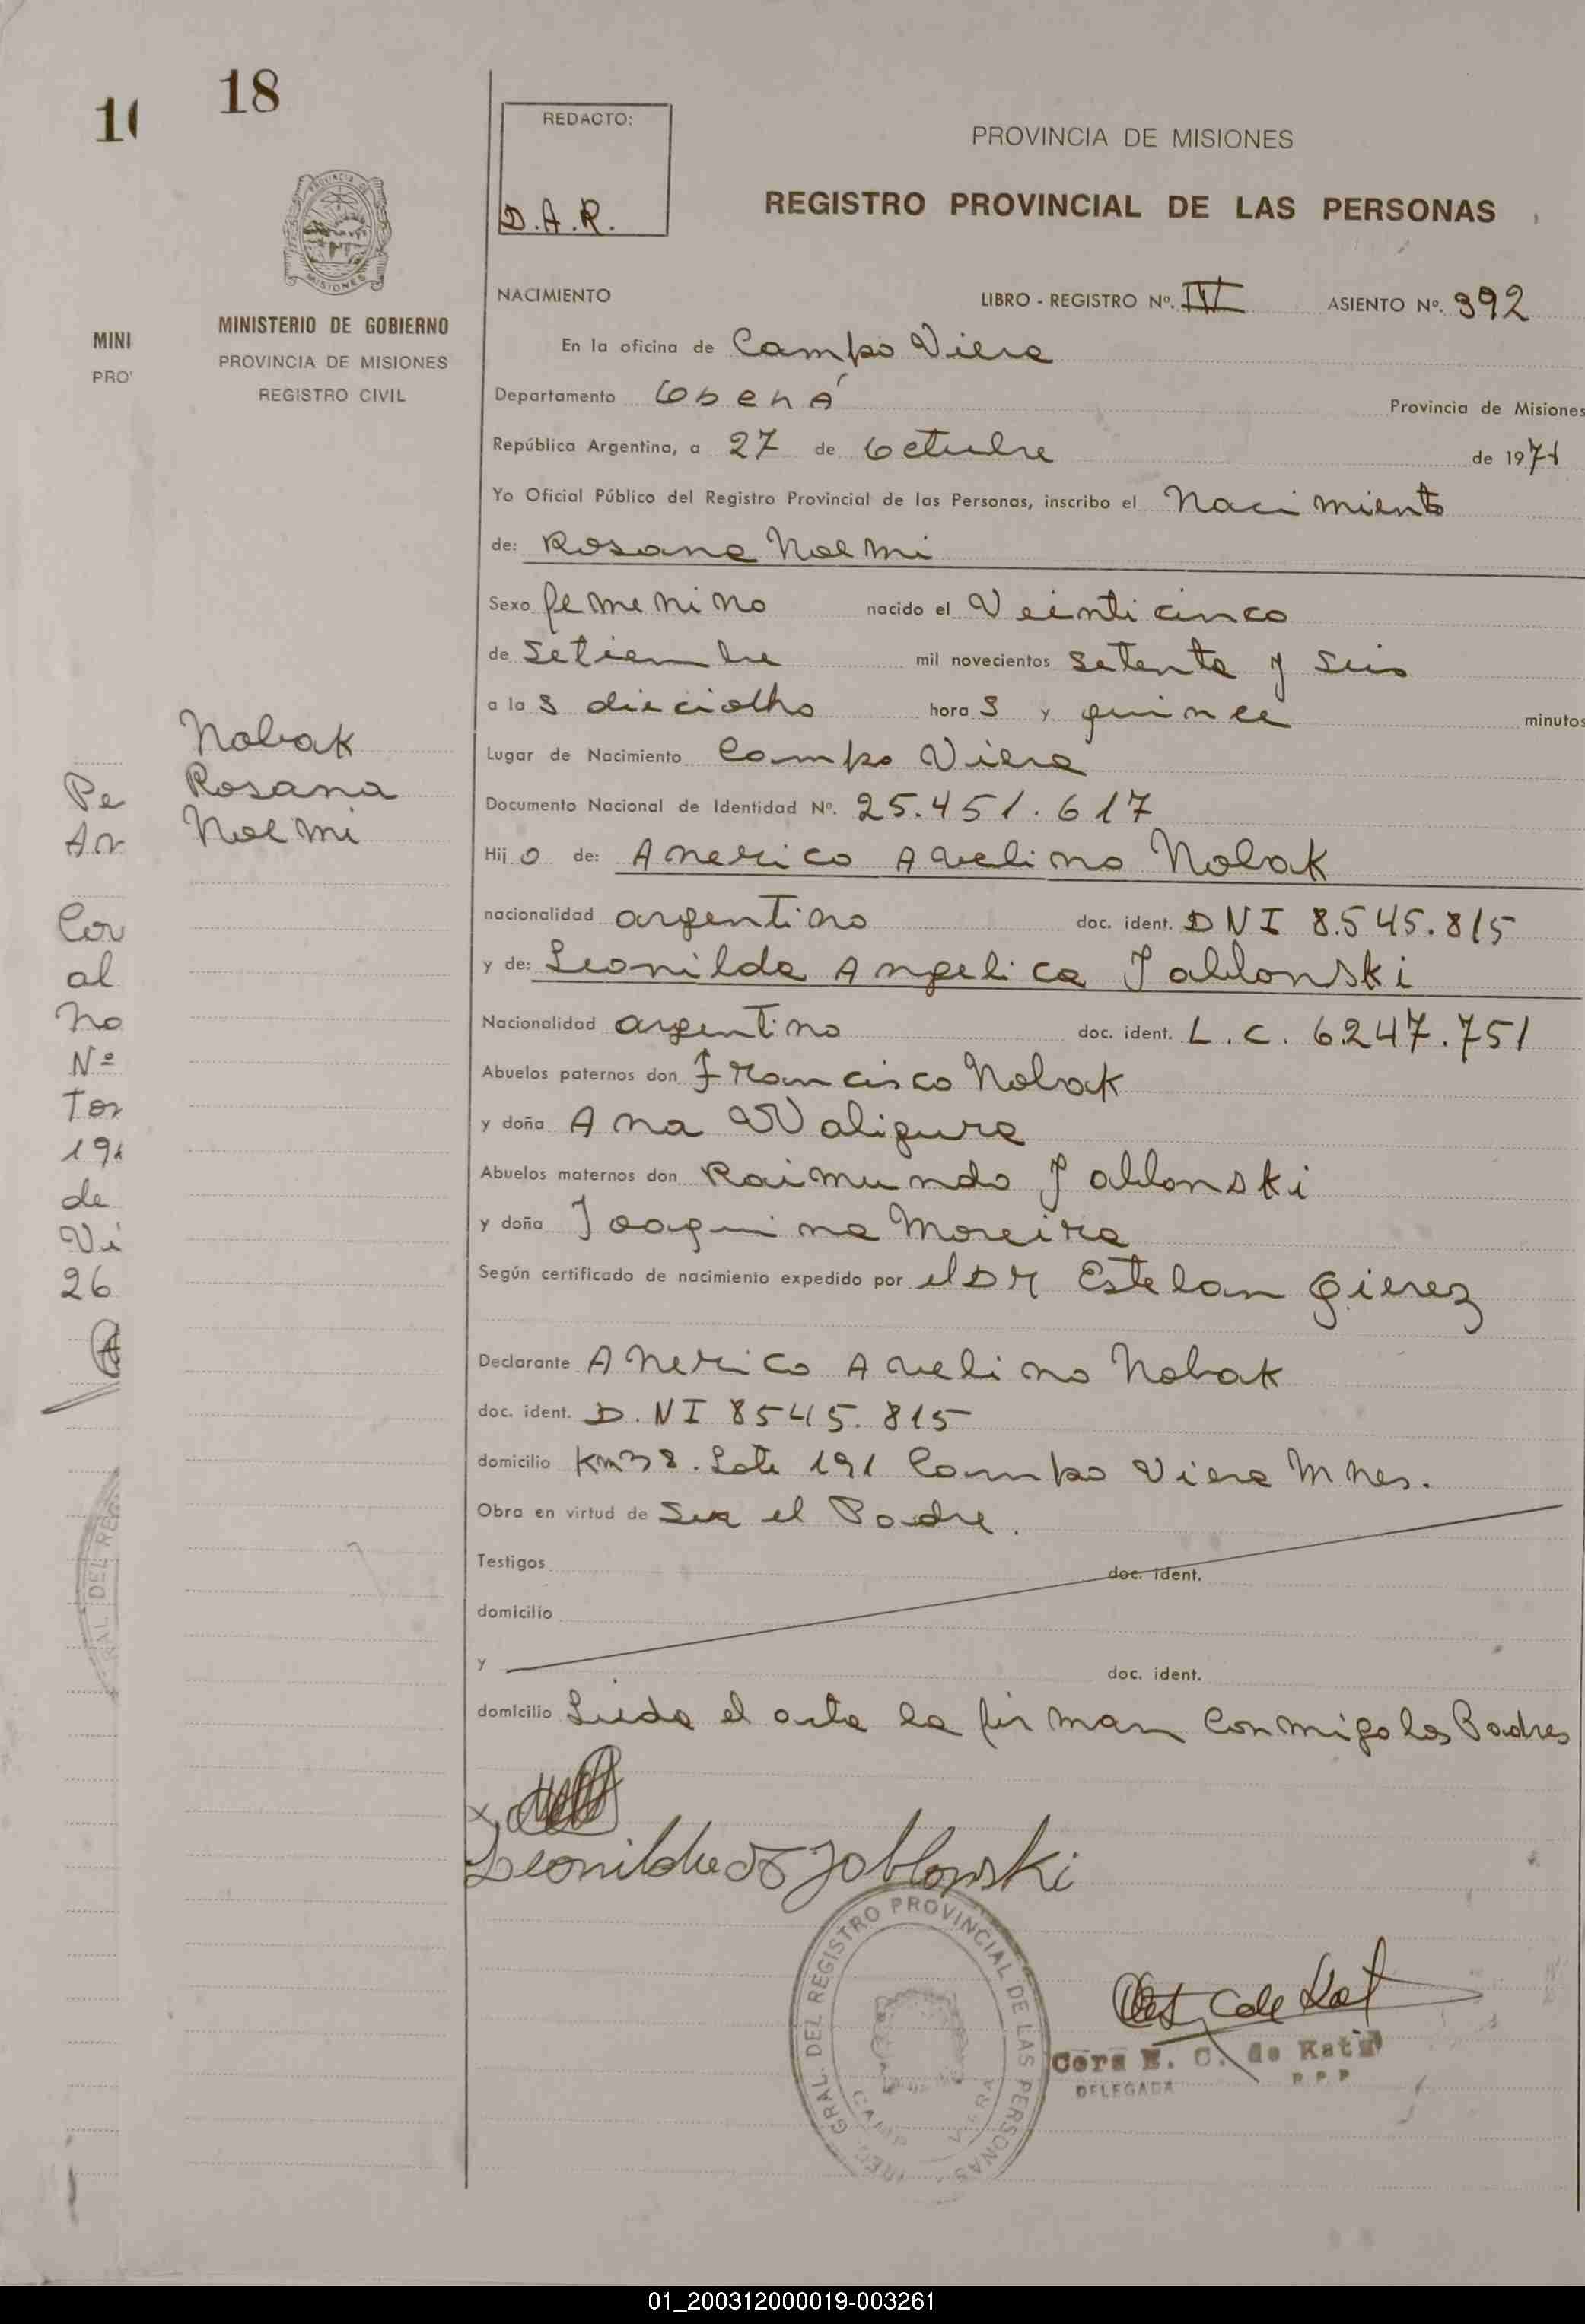 18
1
MINI
PRO
MINISTERIO DE GOBIERNO
PROVINCIA DE MISIONES
REGISTRO CIVIL
Nobak
Rosana
Noemi
Pe
An
Cor
al
No
Nº
Tor
19
de
Vi
26
REDACTO:
D.A.R.
PROVINCIA DE MISIONES
REGISTRO PROVINCIAL DE LAS PERSONAS
NACIMIENTO LIBRO - REGISTRO Nº. III ASIENTO Nº. 392
En la oficina de Campo Viera
Departamento Oberá Provincia de Misiones
República Argentina, a 27 de Octubre de 197
Yo Oficial Público del Registro Provincial de las Personas, inscribo el Nacimiento
de: Rosana Noemi
Sexo femenino nacido el Veinticinco
de Setiembre mil novecientos setenta y seis
a la s dieciocho hora s y quince minutos
Lugar de Nacimiento Campo Viera
Documento Nacional de Identidad Nº. 25.451.617
Hij o de: Anerico Avelino Nobak
nacionalidad argentino doc. ident. DNI 8.545.815
y de: Leonilda Angelica Jablonski
Nacionalidad argentino doc. ident. L.C. 6247.751
Abuelos paternos don Francisco Nobak
y doña Ana Waligura
Abuelos maternos don Raimundo Jablonski
y doña Joaquina Moreira
Según certificado de nacimiento expedido por el DR Esteban Gierez
Declarante Anerico Avelino Nobak
doc. ident. D.NI 8545.815
domicilio Km 38. Lote 191 Campo Viera Mnes.
Obra en virtud de Ser el Padre.
Testigos doc. ident.
domicilio
y doc. ident.
domicilio Leida el acta la firman conmigo los Padres
Leonilda Jablonski
GRAL. DEL REGISTRO PROVINCIAL DE LAS PERSONAS
CAMPO VIERA
Cora E. C. de Katz
DELEGADA R P P
AL DEL REG
01_200312000019-003261